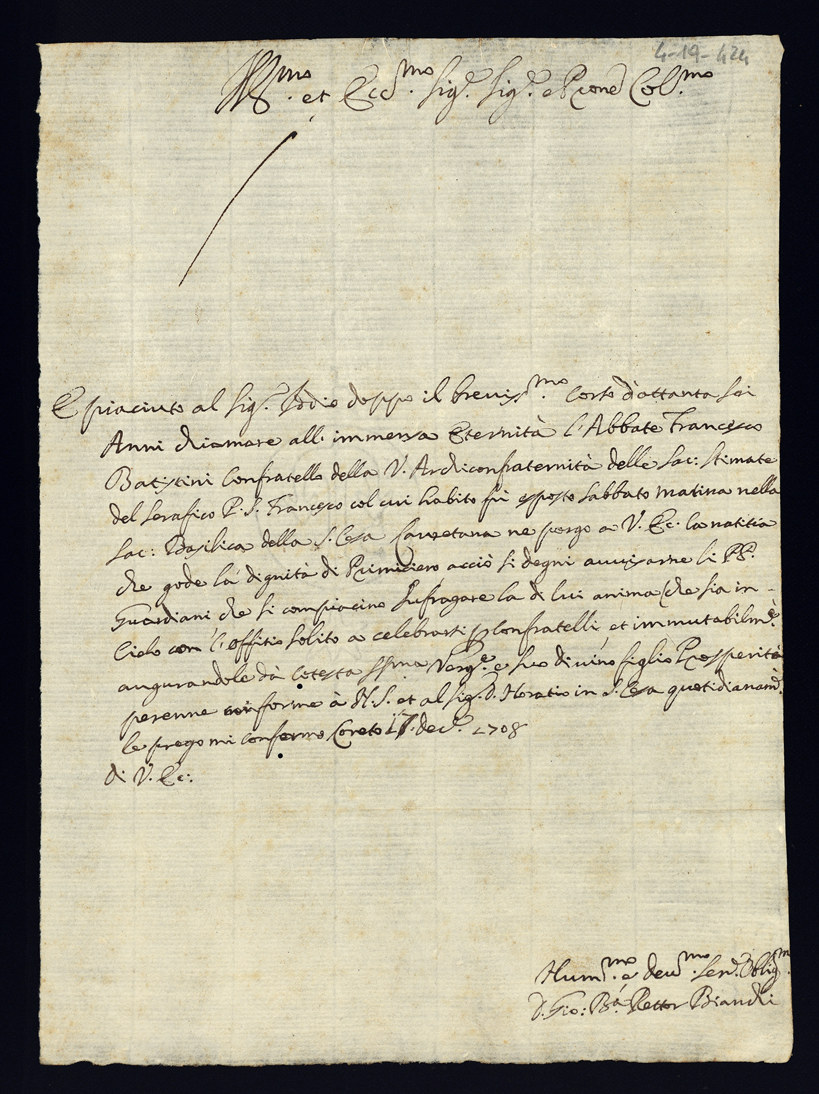 4-19-424
Ill.mo et Ecc.mo Sig.r Sig.r e Prone Col.mo
È piaciuto al Sig.r Iddio doppo il breviss.mo corso d'ottanta sei
Anni chiamare all' immensa Eternità l'Abbate Francesco
Batistini Confratello della V. Archiconfraternità delle Sac: Stimate
del Serafico P. S. Francesco col cui habito fù esposto sabbato matina nella
Sac: Basilica della S. Casa Lauretana ne porgo a V. Ec: la notitia
che gode la dignità di Primicero acciò si degni auuisarne li PP.
Guardiani che si compiacino suffragare la di lui anima (che sia in
Cielo con l'offitio solito a celebrarsi p confratelli, et immutabilm.e
augurandole dà cotesta SSma Verg.e e suo diuino figlio Prosperità
perenne conforme à N.S. et al Sig. D. Horatio in S. Casa quotidianam.e
le prego mi confermo Loreto 17 dec. 1708
di V. Ec:
Hum.mo e deu.mo Ser. Oblig.m
D. Gio: B.a Rettor Bianchi